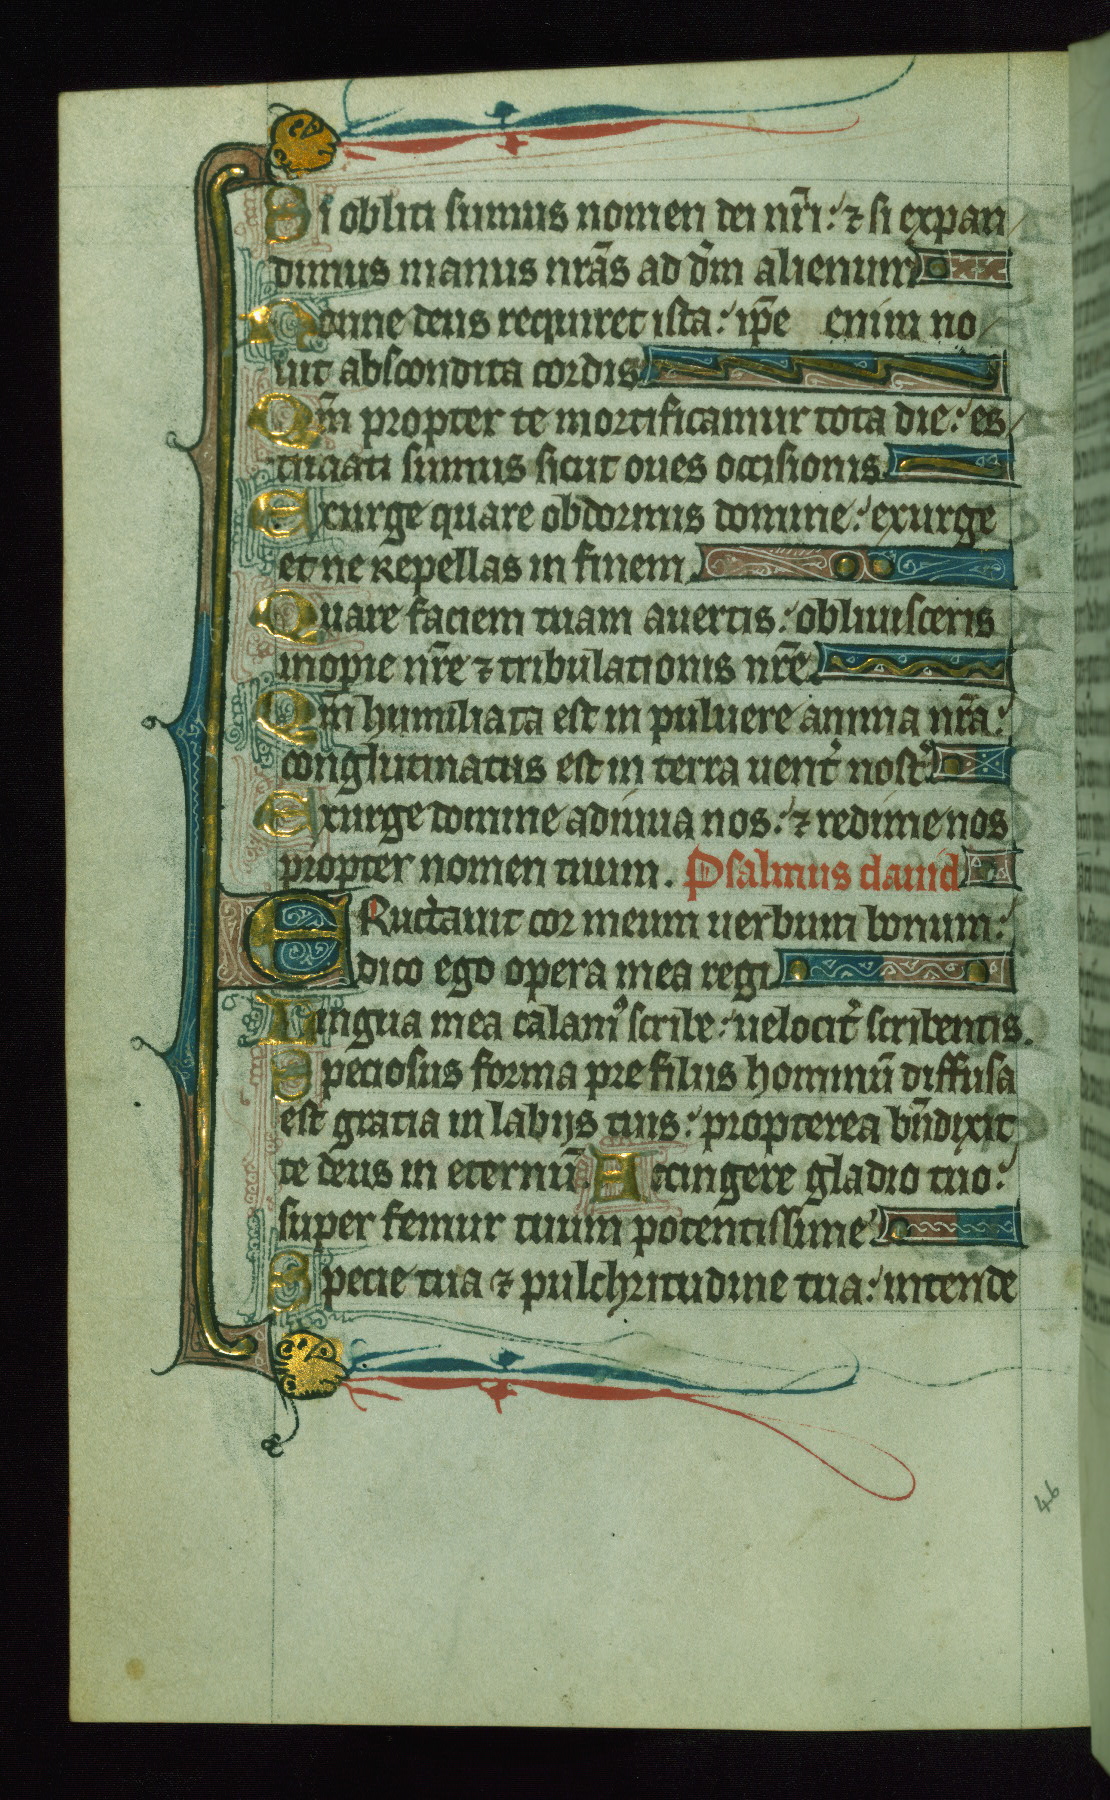 Si obliti sumus nomen dei nr̄i: ⁊ si expan
dimus manus nrās ad dm̄ alienum
Nonne deus requiret ista: ip̄e enim no
uit abscondita cordis
Qm̄ propter te mortificamur tota die: es
timati sumus sicut oues occisionis
Exurge quare obdormis domine: exurge
et ne repellas in finem.
Quare faciem tuam auertis: obliuisceris
inopie nr̄e ⁊ tribulationis nr̄e.
Qm̄ humiliata est in puluere anima nr̄a:
conglutinatus est in terra uent̉ nost̉
Exurge domine adiuua nos: ⁊ redime nos
propter nomen tuum. Psalmus dauid
ERuctauit cor meum uerbum bonum:
dico ego opera mea regi
Lingua mea calamꝰ scribe: uelocit̉ scribentis.
Speciosus forma pre filiis hominū diffusa
est gratia in labijs tuis: propterea bn̄dixit
te deus in eternū. Accingere gladio tuo:
super femur tuum potentissime
Specie tua ⁊ pulchritudine tua: intende
46